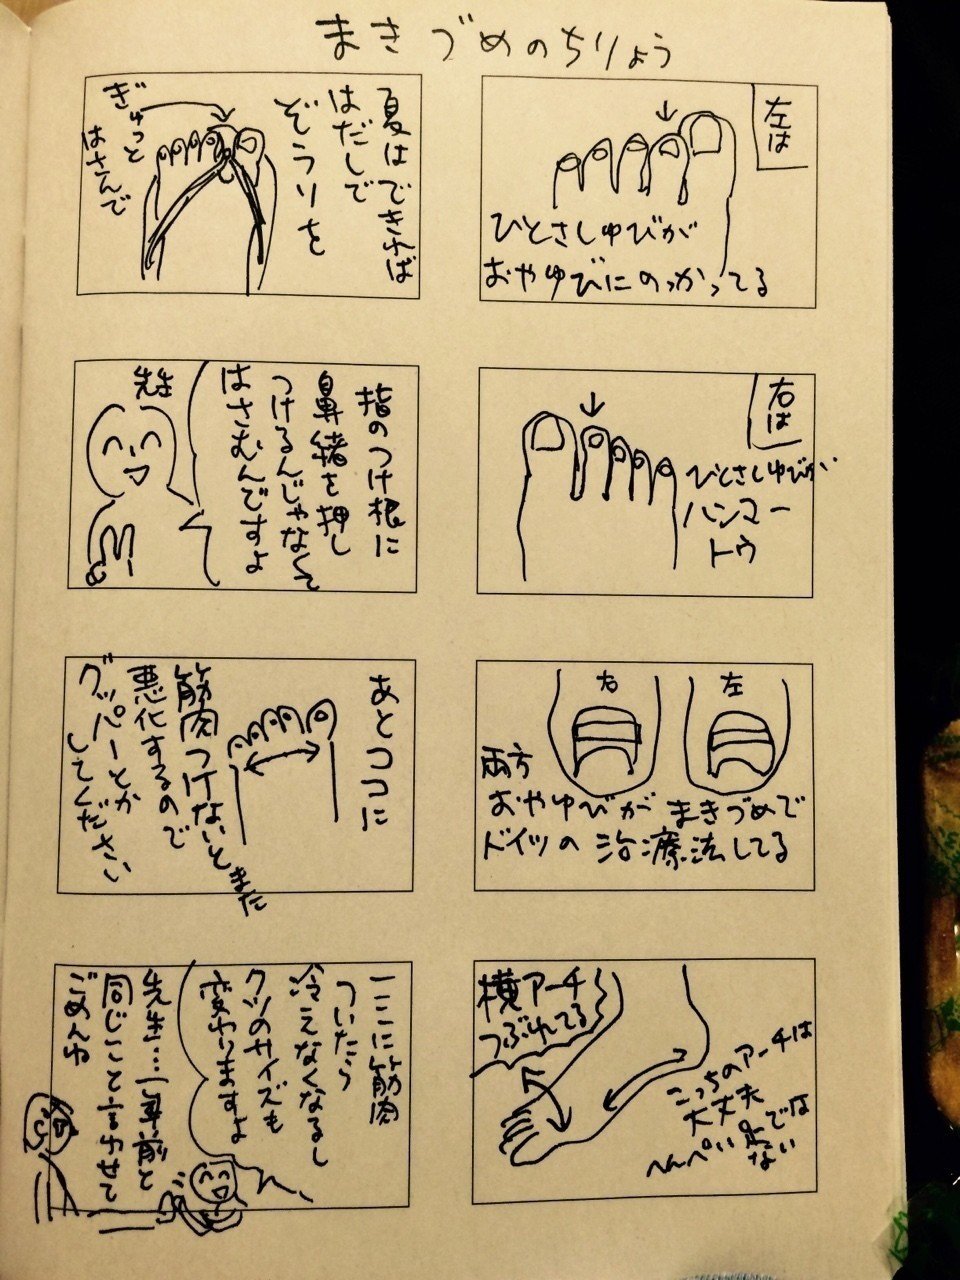 まきづめのちりょう
左は
ひとさしゆびが
おやゆびにのっかってる
右は
ひとさしゆびが
ハンマー
トウ
右
左
両方
おやゆびが まきづめで
ドイツの治療法してる
横アーチ
つぶれてる
こっちのアーチは
大丈夫
へんぺい足では
ない
夏はできれば
はだしで
ぞうりを
ぎゅっと
はさんで
指のつけ根に
鼻緒を押し
つけるんじゃなくて
はさむんですよ
先生
あとココに
筋肉つけないとまた
悪化するので
グッパーとか
してください
ここに筋肉
ついたら
冷えなくなるし
クツのサイズも
変わりますよ
先生…一年前と
同じこと言わせて
ごめんね